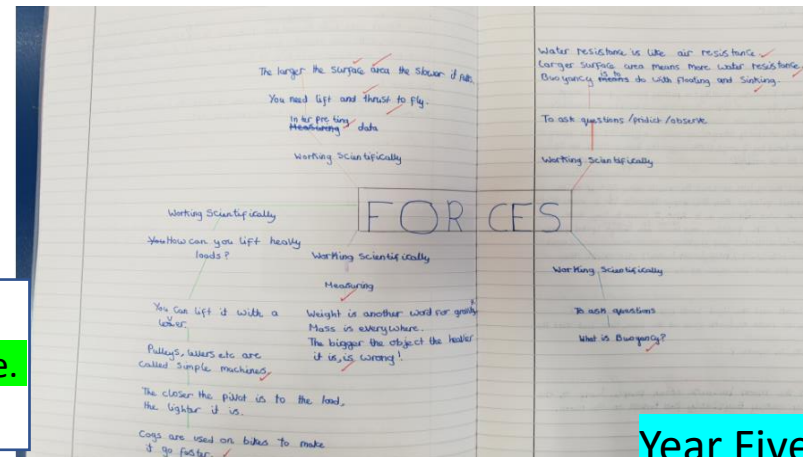 The larger the surface area the slower it falls.
You need lift and thrust to fly.
Interpreting
Measuring data
Working Scientifically
Working Scientifically
You How can you lift heavy
loads?
You can lift it with a
lever.
Pulleys, levers etc are
called simple machines.
The closer the pivot is to the load,
the lighter it is.
Cogs are used on bikes to make
it go faster.
FORCES
Working Scientifically
Measuring
Weight is another word for gravity
Mass is everywhere.
The bigger the object the heavier
it is, is wrong!
Water resistence is like air resistance.
Larger surface area means more water resistance.
Buoyancy means is to do with floating and sinking.
To ask questions/pridict/observe
Working Scientifically
Working Scientifically
To ask questions
What is Buoyancy?
e.
Year Five